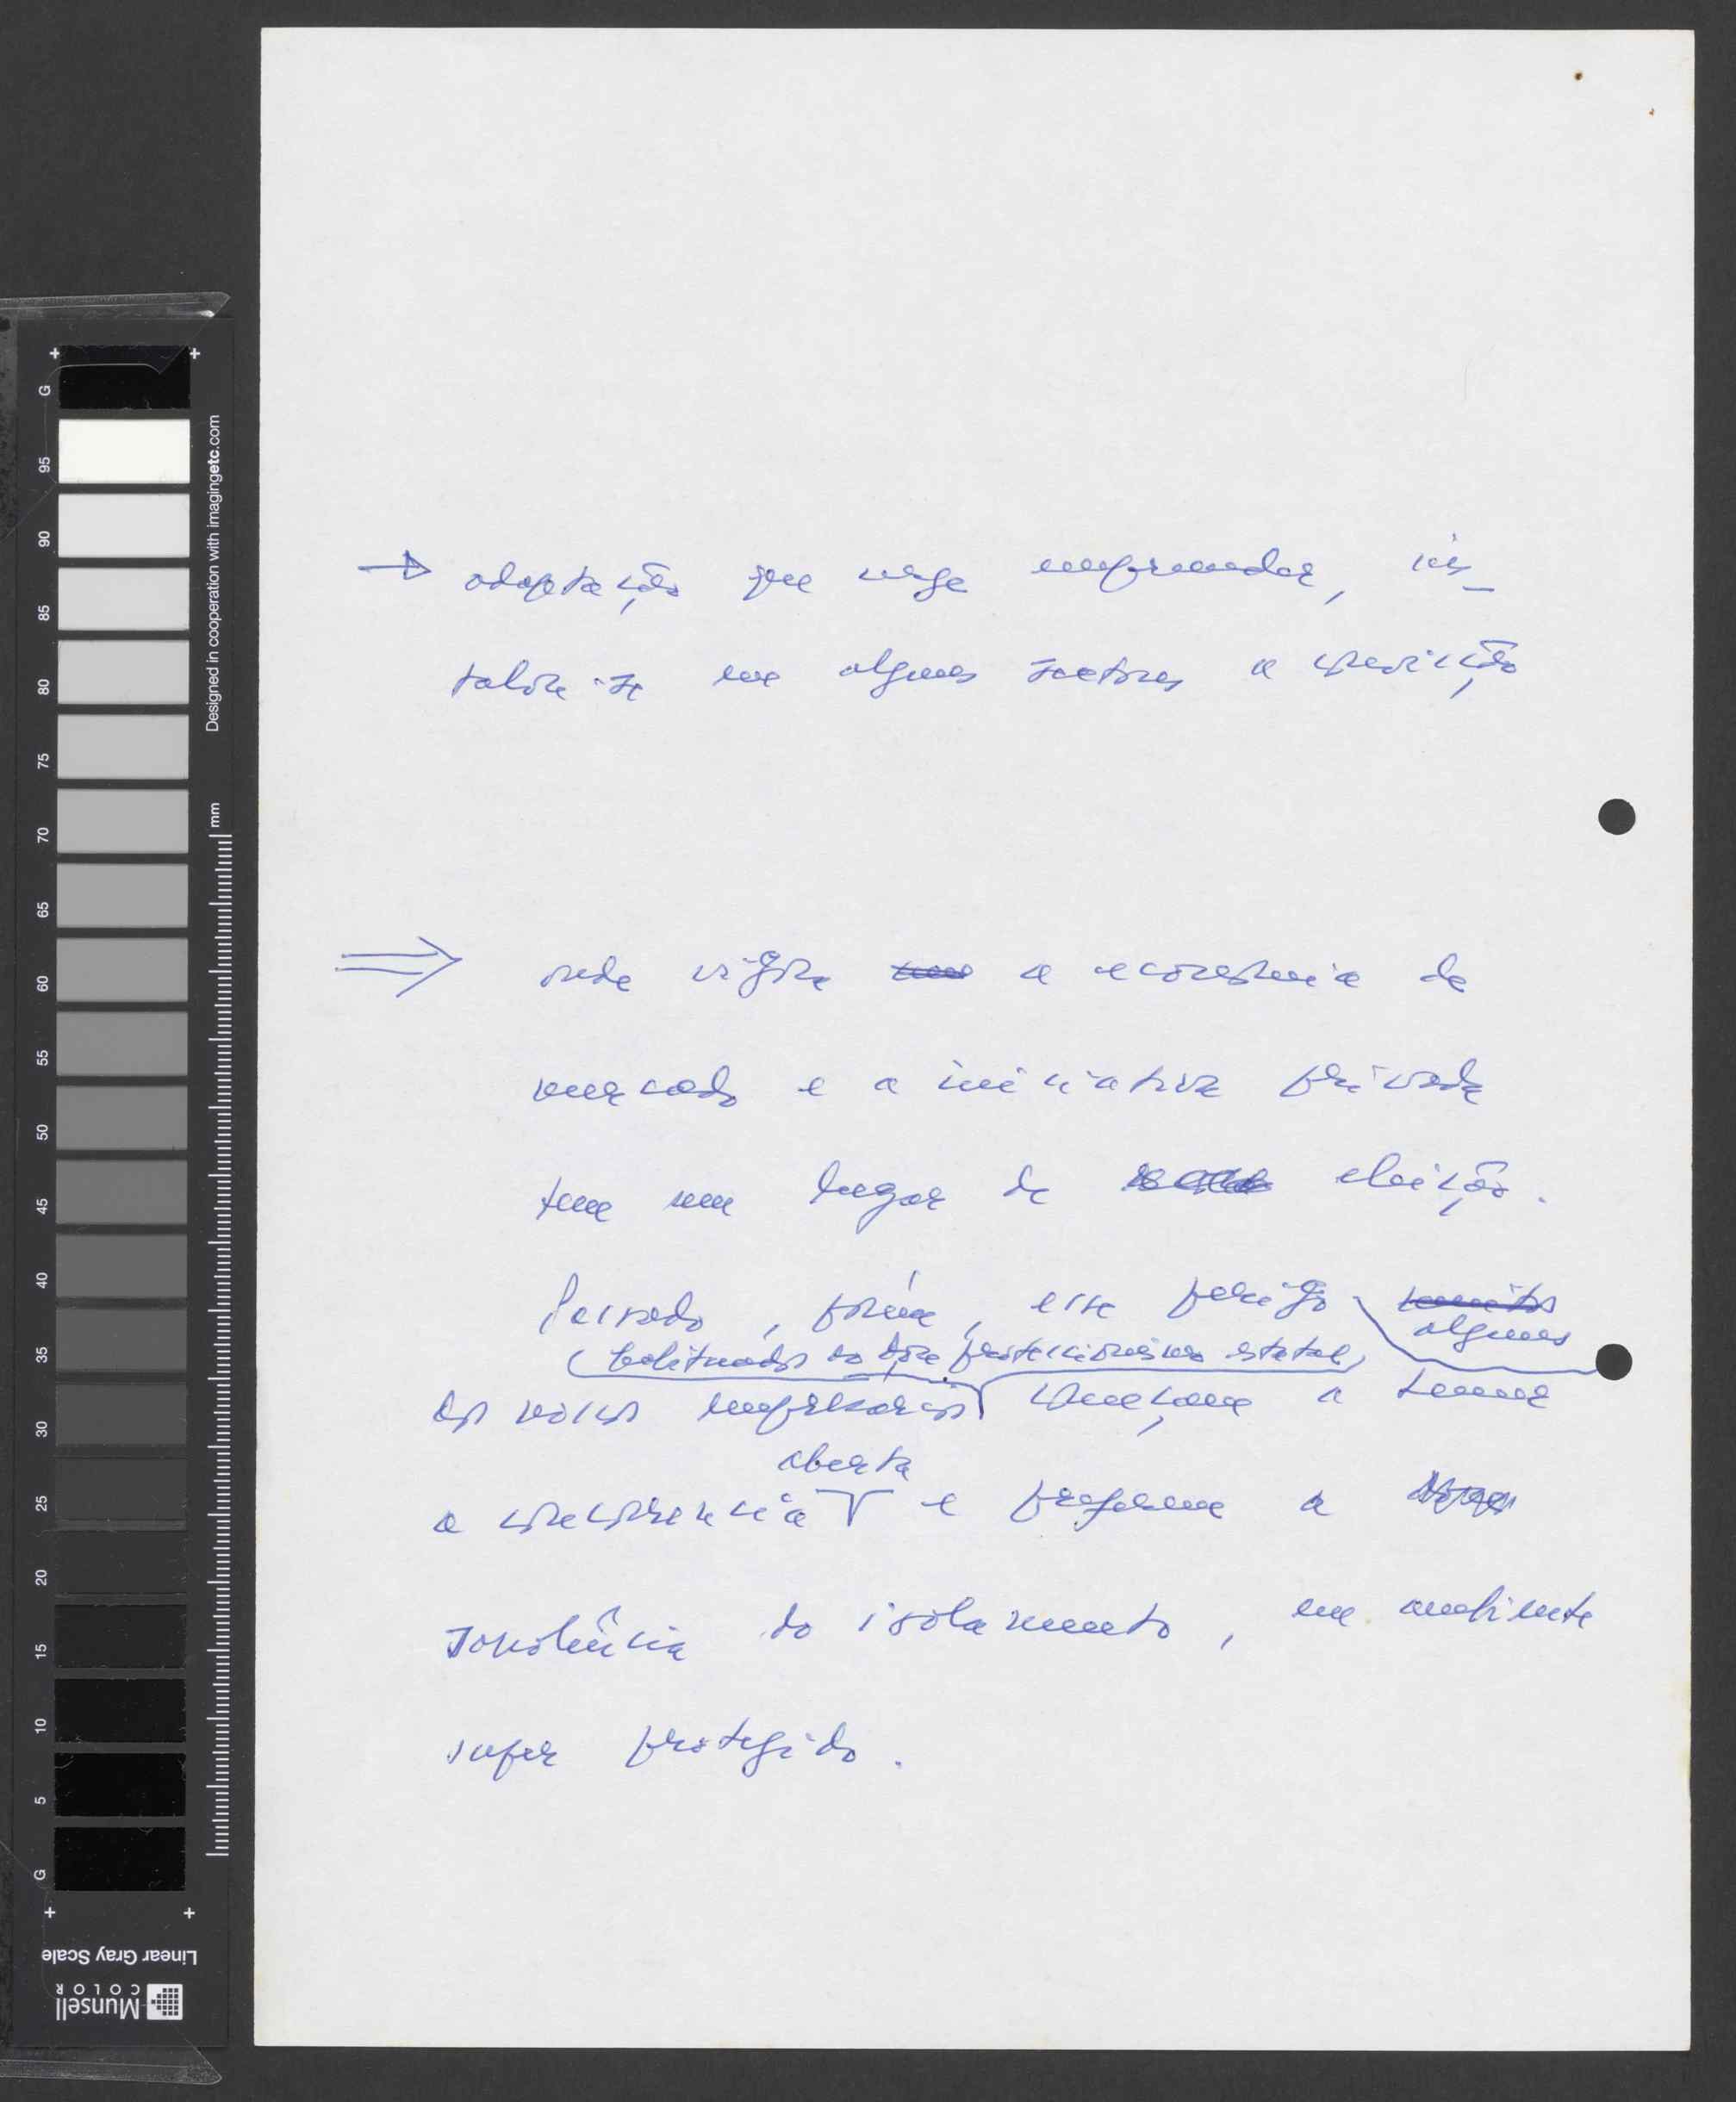 G
95
90
85
80
75
70
65
60
55
50
45
40
35
30
25
20
15
10
5
G
Designed in cooperation with imagingetc.com
mm
Linear Gray Scale
Munsell
COLOR
→ adaptação que urge empreender, ins-
talou-se em alguns sectores a convicção
⇒ onde vigora a economia de
mercado e a iniciativa privada
tem um lugar de eleição.
Passado, porém, esse perigo muitos
alguns
(habituados ao doce proteccionismo estatal)
dos nossos empresários começam a temer
aberta
a concorrência e preferem a
sonolência do isolamento, em ambiente
super protegido.